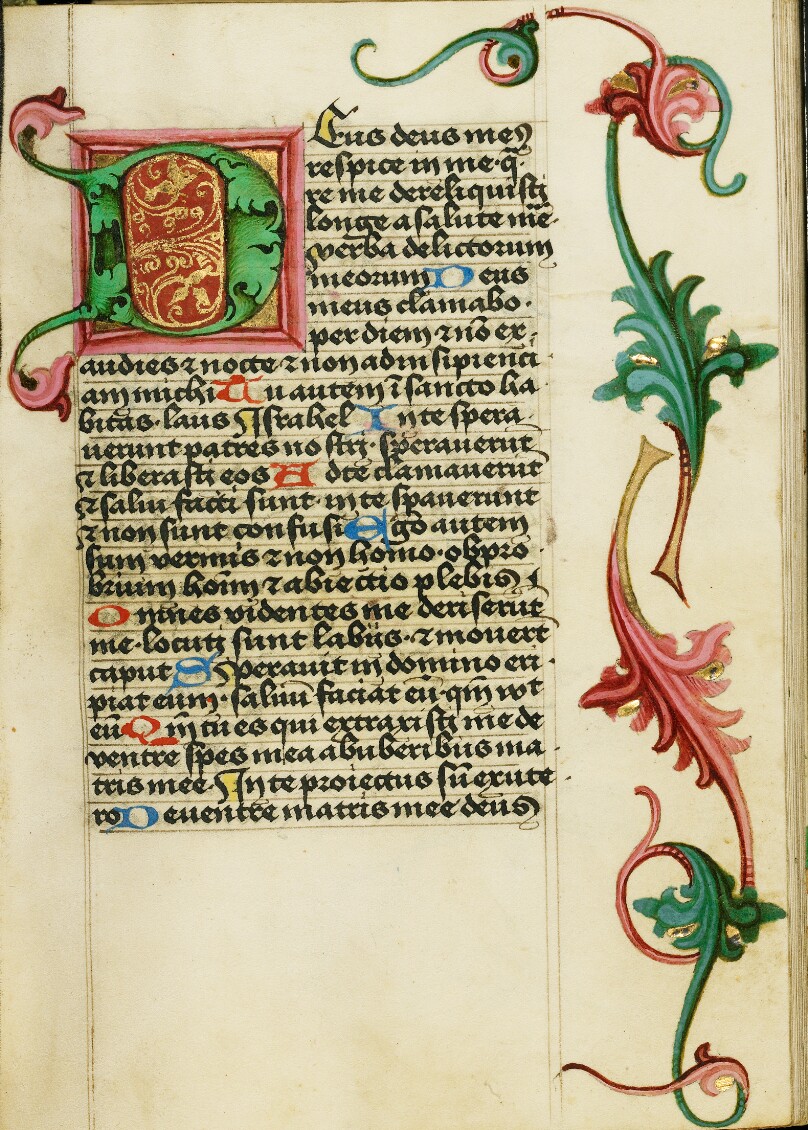 Deus deus meus
respice in me · q̄
re me dereliquisti
longe a salute mea ·
verba delictorum
meorum Deus
meus clamabo ·
per diem ⁊ nō ex
audies ⁊ nocte ⁊ non ad insipienti
am michi Tu autem ī sancto ha
bitas · laus Israhel In te spera
verunt patres nostri · speraverūt
⁊ liberasti eos Ad te clamaverūt
⁊ salvi facti sunt · in te sperauerunt
⁊ non sunt confusi Ego autem
sum vermis ⁊ non homo · obpro
brium hoīm ⁊ abiectio plebis
Omnes videntes me deriserūt
me · locuti sunt labiis · ⁊ moverūt
caput Speravit in domino eri
piat eum · salvū faciat eū · qm̄ vvlt
eū Qm̄ tu es qui extraxisti me de
ventre spes mea ab uberibus ma
tris mee · In te proiectus sū ex ute
ro De ventre matris mee deus